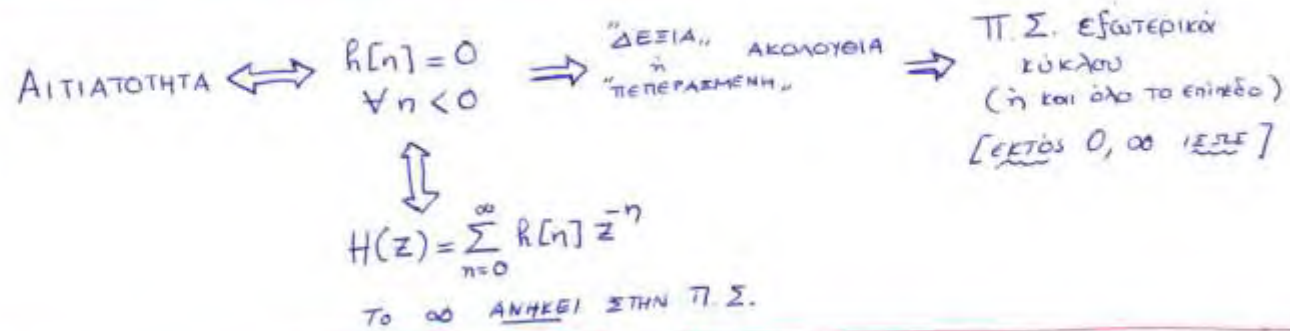 ΑΙΤΙΑΤΟΤΗΤΑ ⟺ h[n] = 0
∀ n < 0
⟹ "ΔΕΞΙΑ„
ή
"ΠΕΠΕΡΑΣΜΕΝΗ„
ΑΚΟΛΟΥΘΙΑ ⟹
Π.Σ. εξωτερικά
κύκλου
(ή και όλο το επίπεδο)
[εκτός 0, ∞ ΙΣΩΣ]
⇕
H(z) = ∑_{n=0}^{∞} h[n] z^{-n}
Το ∞ ΑΝΗΚΕΙ ΣΤΗΝ Π.Σ.